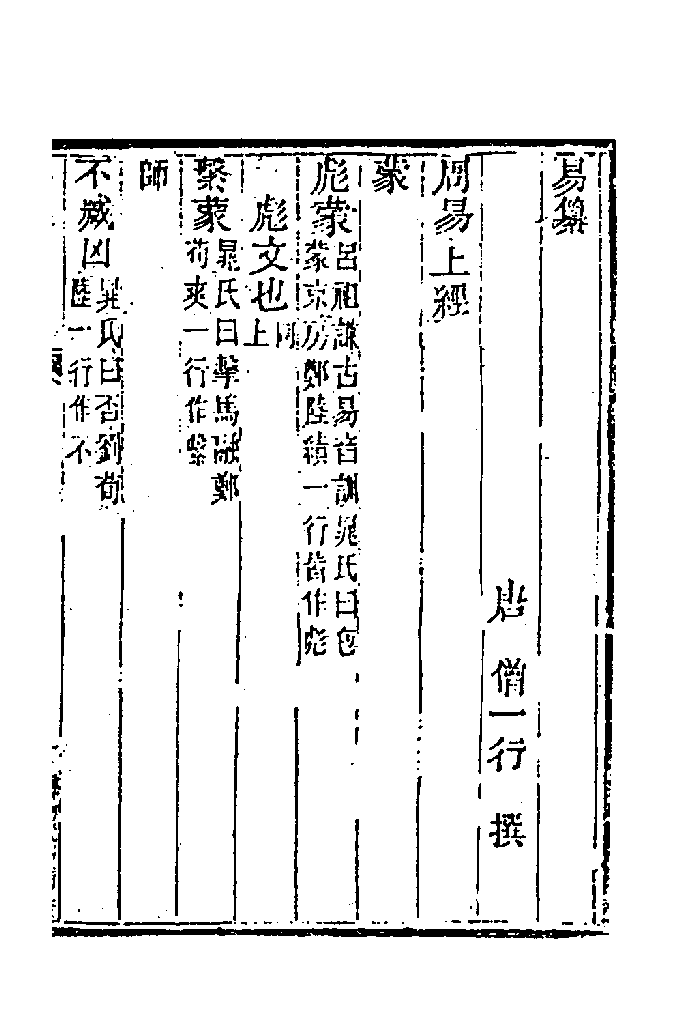 易纂
唐 僧一行 撰
周易上經
蒙
彪蒙 呂祖謙古易音訓晁氏曰包
蒙京房鄭陸績一行皆作彪
彪文也 同
上
繫蒙 晁氏曰擊馬融鄭
荀爽一行作繫
師
不臧凶 晁氏曰否劉荀
陸一行作不